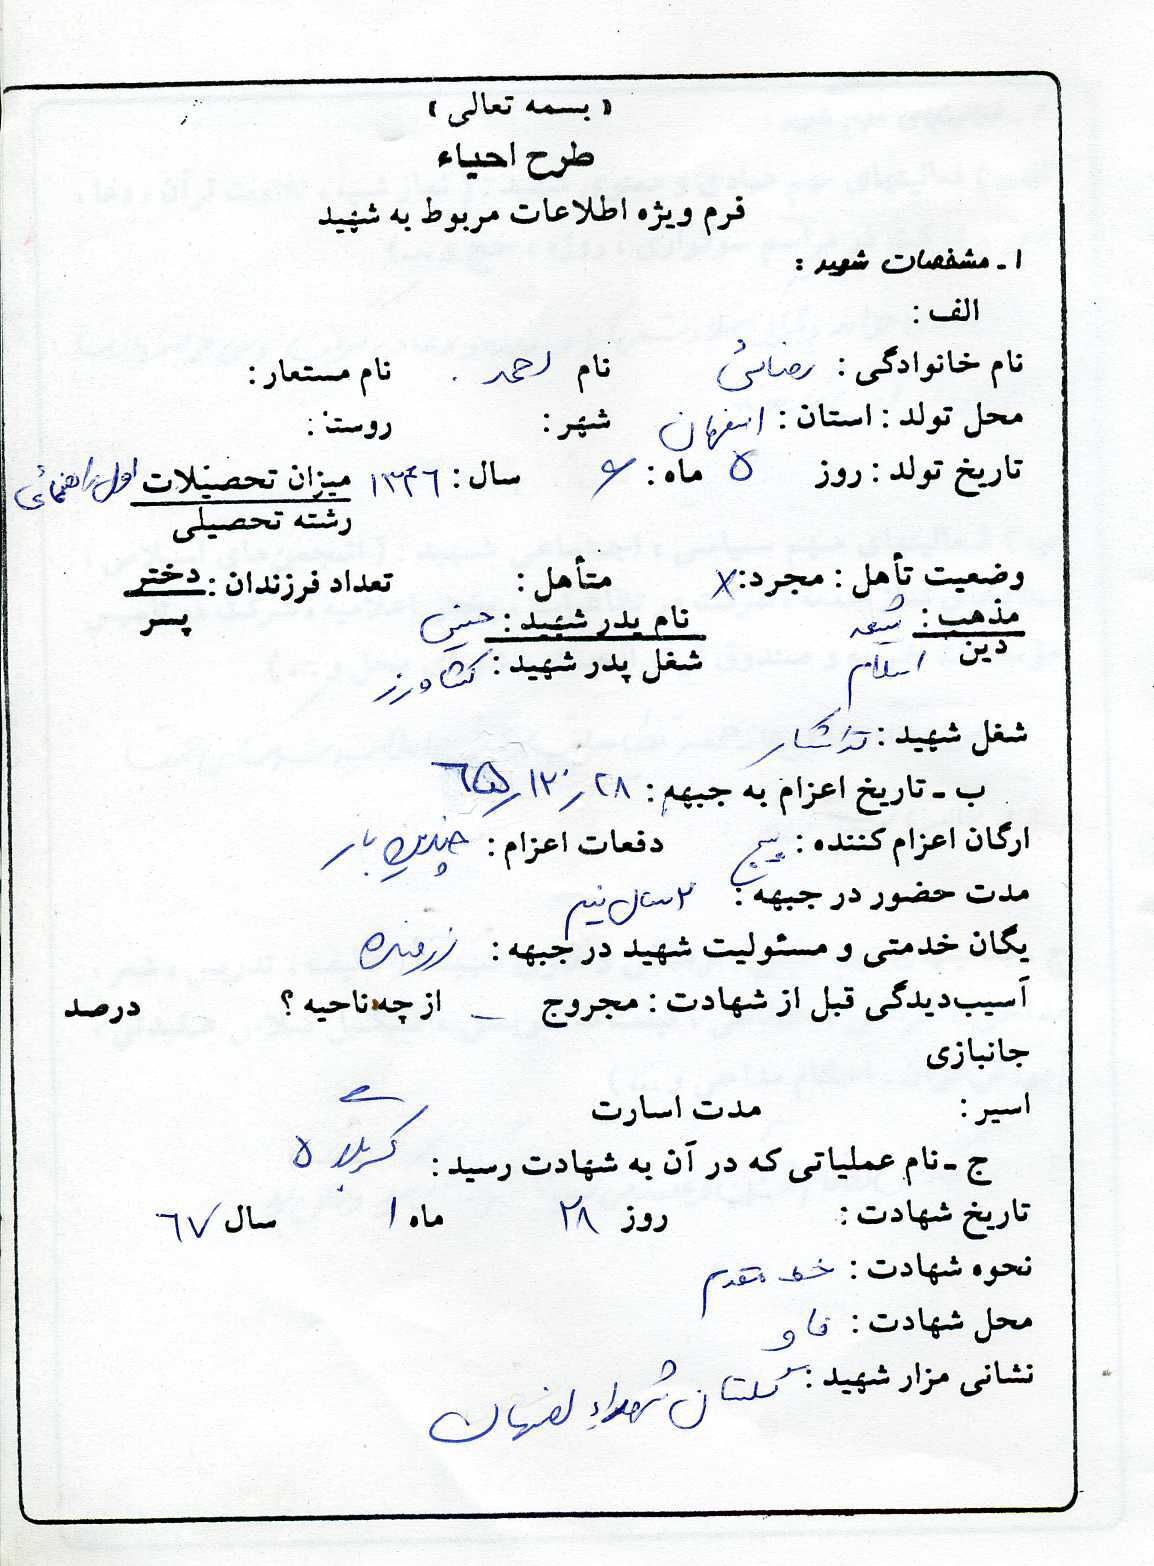 « بسمه تعالی »
طرح احیاء
فرم ویژه اطلاعات مربوط به شهید
۱ ـ مشخصات شهید :
الف :
نام خانوادگی : رضائی نام احمد نام مستعار :
محل تولد : استان : اصفهان شهر : روستا :
تاریخ تولد : روز ۵ ماه : ۶ سال : ۱۳۴۶ میزان تحصیلات اول راهنمائی
رشته تحصیلی
وضعیت تأهل : مجرد : x متأهل : تعداد فرزندان : دختر
پسر
مذهب : شیعه نام پدر شهید : حسین
دین اسلام شغل پدر شهید : کشاورز
شغل شهید : تراشکار
ب ـ تاریخ اعزام به جبهه : ۲۸ / ۱۲ / ۶۵
ارگان اعزام کننده : بسیج دفعات اعزام : چندین بار
مدت حضور در جبهه : ۲ سال نیم
یگان خدمتی و مسئولیت شهید در جبهه : رزمنده
آسیب‌دیدگی قبل از شهادت : مجروح ـ از چه ناحیه ؟ درصد
جانبازی
اسیر : مدت اسارت
ج ـ نام عملیاتی که در آن به شهادت رسید : کربلای ۵
تاریخ شهادت : روز ۲۸ ماه ۱ سال ۶۷
نحوه شهادت : خط مقدم
محل شهادت : فاو
نشانی مزار شهید : گلستان شهداء اصفهان